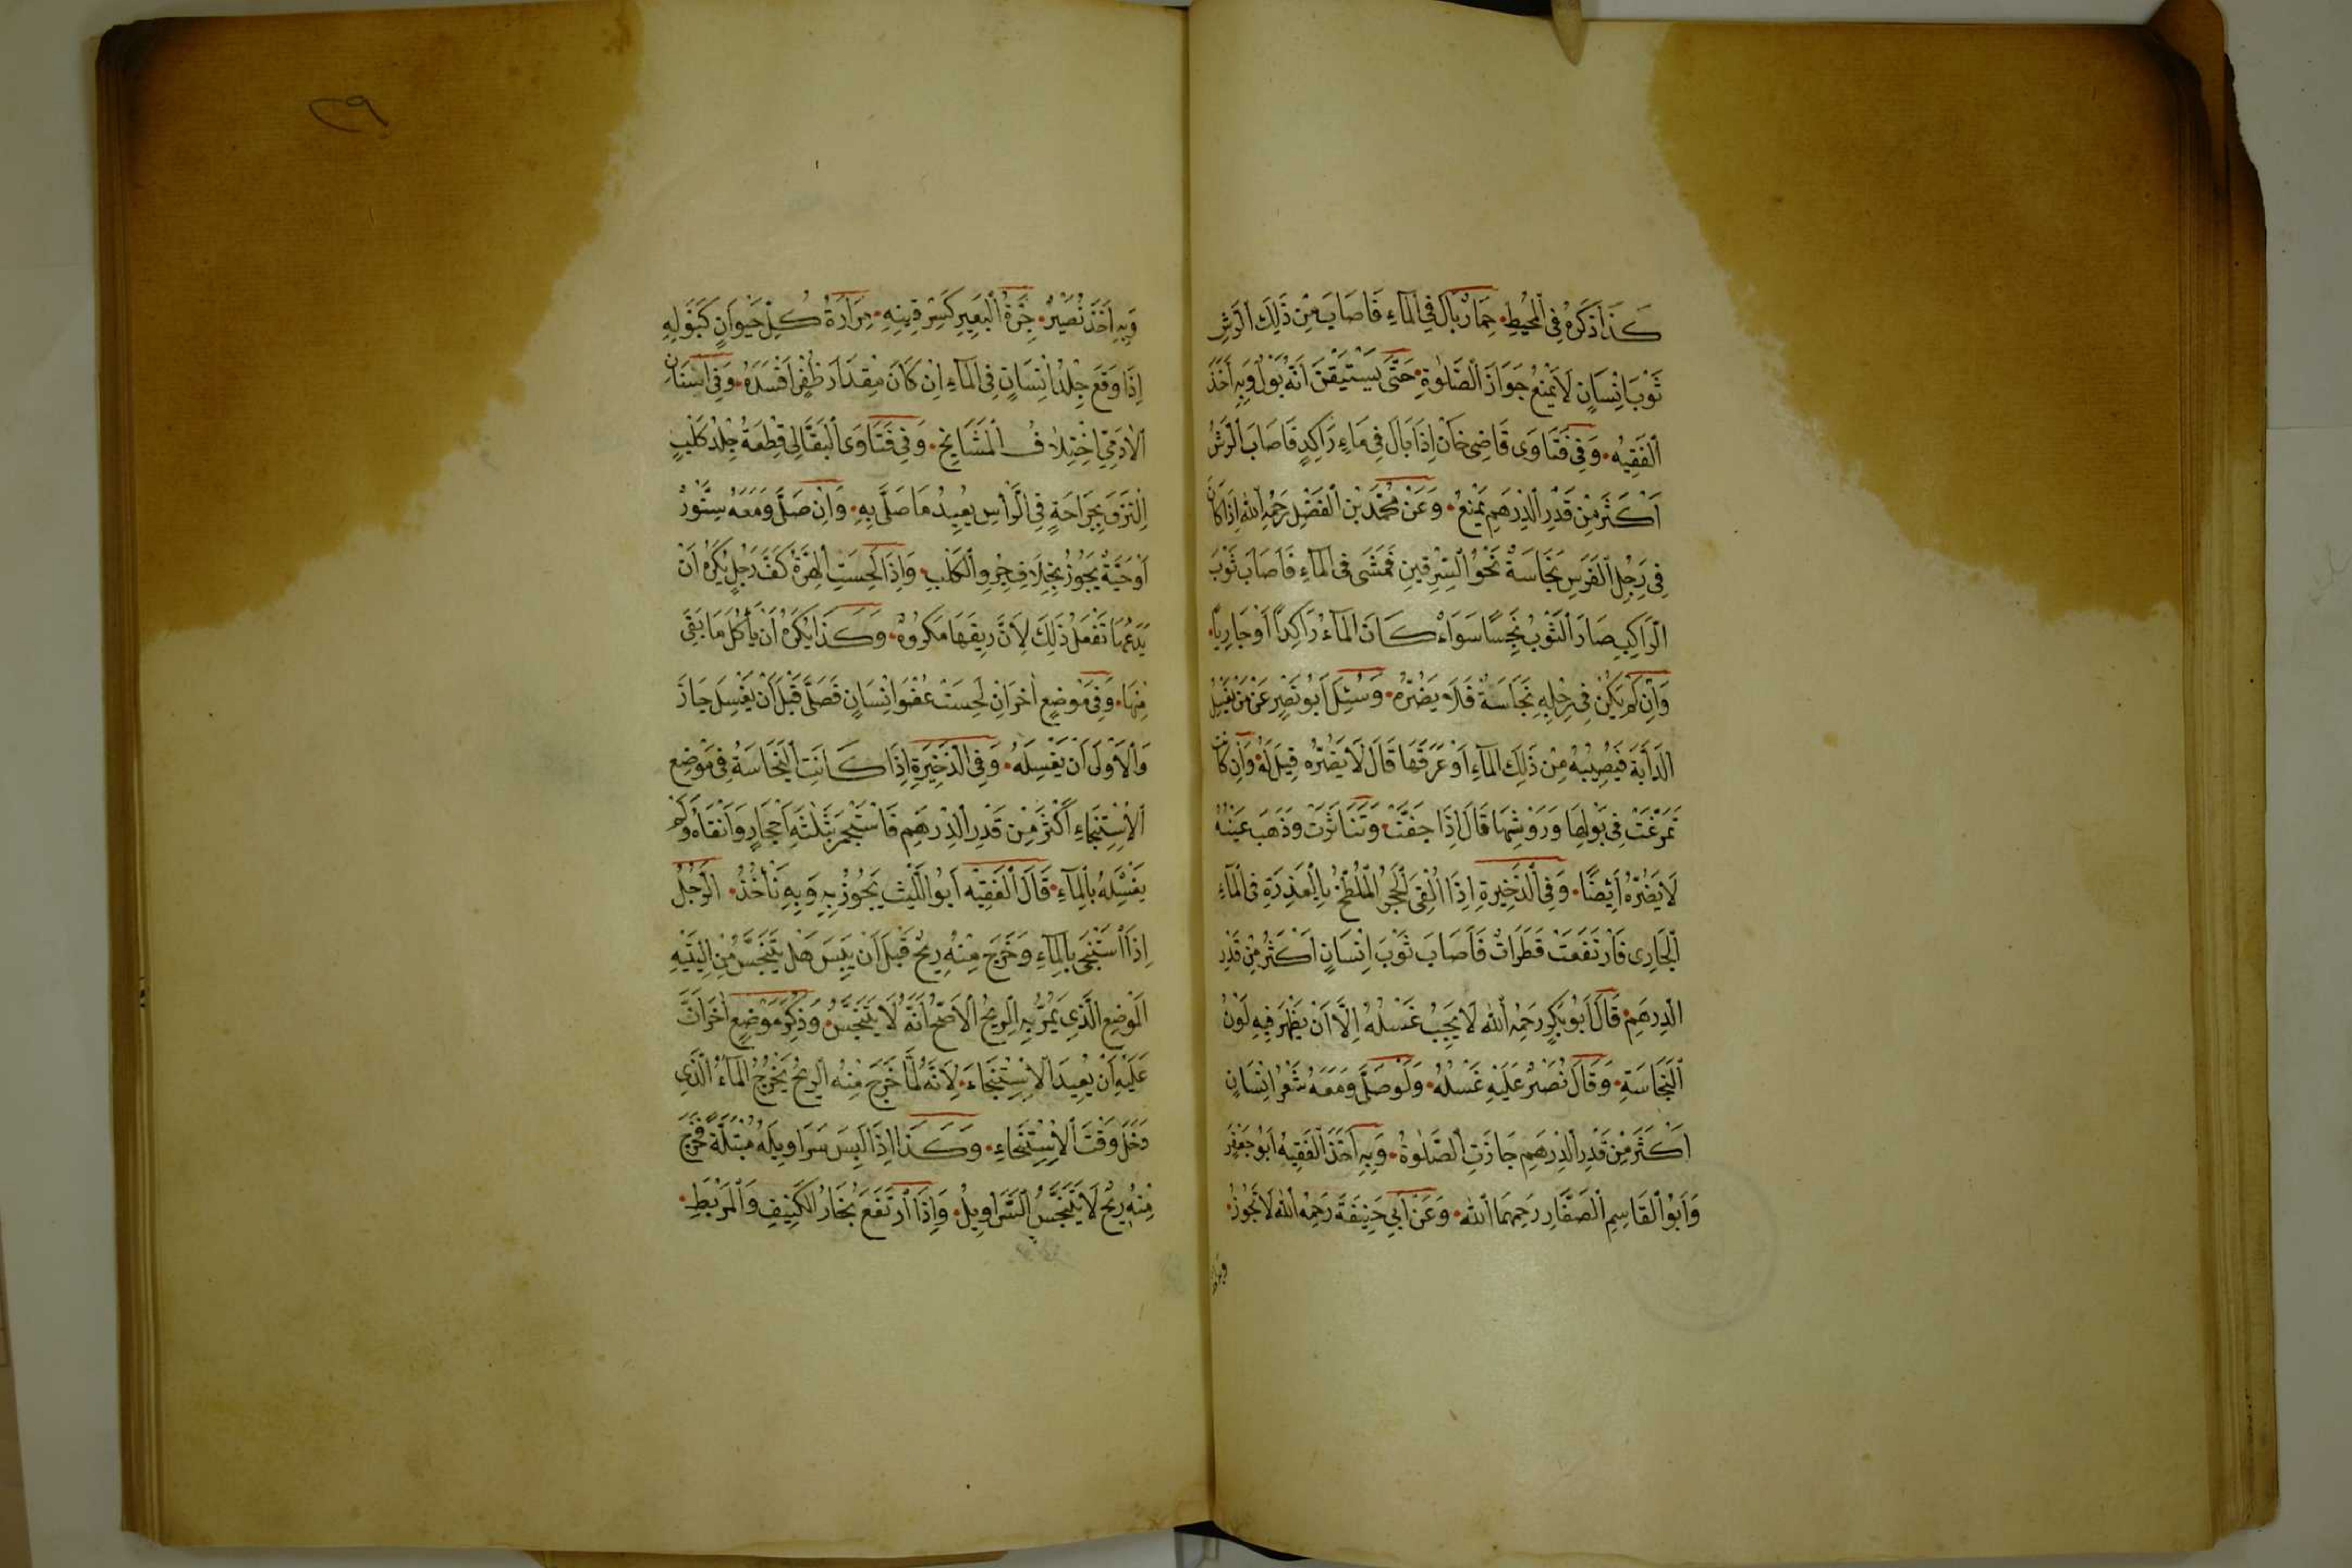 كَذَا ذَكَرَهُ فِي الْمُحِيطِ. حِمَارٌ بَالَ فِي الْمَآءِ فَاَصَابَ مِنْ ذَلِكَ الرَّشِّ
ثَوْبَ اِنْسَانٍ لَا يَمْنَعُ جَوَازَ الصَّلٰوةِ. حَتَّى يَسْتَيْقِنَ اَنَّهُ بَوْلٌ وَبِهِ اَخَذَ
الْفَقِيهُ. وَفِي فَتَاوَى قَاضِى خَانْ اِذَا بَالَ فِي مَاءٍ رَاكِدٍ فَاَصَابَ الرَّشُّ
اَكْثَرَ مِنْ قَدْرِ الدِّرْهَمِ يَمْنَعُ. وَعَنْ مُحَمَّدِ بْنِ الْفَضْلِ رَحِمَهُ اللهُ اِذَا كَانَ
فِي رِجْلِ الْفَرَسِ نَجَاسَةٌ نَحْوُ السِّرْقِينِ فَمَشَى فِي الْمَآءِ فَاَصَابَ ثَوْبَ
الرَّاكِبِ صَارَ الثَّوْبُ نَجِسًا سَوَاءٌ كَانَ الْمَآءُ رَاكِدًا اَوْ جَارِيًا.
وَاِنْ لَمْ يَكُنْ فِي رِجْلِهِ نَجَاسَةٌ فَلَا يَضُرُّهُ. وَسُئِلَ اَبُو نَصْرٍ عَنْ مَنْ يَغْسِلُ
الدَّابَّةَ فَيُصِيبُهُ مِنْ ذَلِكَ الْمَآءِ اَوْ عَرَقِهَا قَالَ لَا يَضُرُّهُ قِيلَ لَهُ وَاِنْ كَانَتْ
تَمَرَّغَتْ فِي بَوْلِهَا وَرَوْثِهَا قَالَ اِذَا جَفَّتْ وَتَنَاثَرَتْ وَذَهَبَ عَيْنُهُ
لَا يَضُرُّهُ اَيْضًا. وَفِي الذَّخِيرَةِ اِذَا اُلْقِىَ الْحَجَرُ الْمُلَطَّخُ بِالْعَذِرَةِ فِي الْمَآءِ
الْجَارِى فَارْتَفَعَتْ قَطَرَاتٌ فَاَصَابَ ثَوْبَ اِنْسَانٍ اَكْثَرُ مِنْ قَدْرِ
الدِّرْهَمِ. قَالَ اَبُو بَكْرٍ رَحِمَهُ اللهُ لَا يَجِبُ غَسْلُهُ اِلَّا اَنْ يَظْهَرَ فِيهِ لَوْنُ
النَّجَاسَةِ. وَقَالَ نُصَيْرٌ عَلَيْهِ غَسْلُهُ. وَلَوْ صَلَّى وَمَعَهُ شَعْرُ اِنْسَانٍ
اَكْثَرَ مِنْ قَدْرِ الدِّرْهَمِ جَازَتِ الصَّلٰوةُ. وَبِهِ اَخَذَ الْفَقِيهُ اَبُو جَعْفَرٍ
وَاَبُو الْقَاسِمِ الصَّفَّارِ رَحِمَهُمَا اللهُ. وَعَنْ اَبِي حَنِيفَةَ رَحِمَهُ اللهُ لَا تَجُوزُ.
وبه
٢٩
وَبِهِ اَخَذَ نُصَيْرٌ. جِرَّةُ الْبَعِيرِ كَسِرْقِينِهِ. مِرَارَةُ كُلِّ حَيْوَانٍ كَبَوْلِهِ
اِذَا وَقَعَ جِلْدُ اِنْسَانٍ فِي الْمَآءِ اِنْ كَانَ مِقْدَارَ ظُفْرٍ اَفْسَدَهُ. وَفِي اَسْنَانِ
الْاٰدَمِيِّ اخْتِلَافُ الْمَشَايِخِ. وَفِي فَتَاوَى الْبَقَّالِي قِطْعَةُ جِلْدِ كَلْبٍ
اِلْتَزَقَ بِجَرَاحَةٍ فِي الرَّأْسِ يُعِيدُ مَا صَلَّى بِهِ. وَاِنْ صَلَّى وَمَعَهُ سِنَّوْرٌ
اَوْ حَيَّةٌ يَجُوزُ بِخِلَافِ جِرْوِ الْكَلْبِ. وَاِذَا لَحِسَتِ الْهِرَّةُ كَفَّ رَجُلٍ يُكْرَهُ اَنْ
يَدَعَهَا تَفْعَلُ ذَلِكَ لِاَنَّ رِيقَهَا مَكْرُوهٌ. وَكَذَا يُكْرَهُ اَنْ يَأْكُلَ مَا بَقِيَ
مِنْهَا. وَفِي مَوْضِعٍ اٰخَرَ اِنْ لَحِسَتْ عُضْوَ اِنْسَانٍ فَصَلَّى قَبْلَ اَنْ يَغْسِلَ جَازَ
وَالْاَوْلَى اَنْ يَغْسِلَهُ. وَفِي الذَّخِيرَةِ اِذَا كَانَتِ النَّجَاسَةُ فِي مَوْضِعِ
الْاِسْتِنْجَاءِ اَكْثَرَ مِنْ قَدْرِ الدِّرْهَمِ فَاسْتَجْمَرَ بِثَلٰثَةِ اَحْجَارٍ وَاَنْقَاهُ وَلَمْ
يَغْسِلْهُ بِالْمَآءِ. قَالَ الْفَقِيهُ اَبُو اللَّيْثِ يَجُوزُ بِهِ وَبِهِ نَأْخُذُ. الرَّجُلُ
اِذَا اسْتَنْجَى بِالْمَآءِ وَخَرَجَ مِنْهُ رِيحٌ قَبْلَ اَنْ يَيْبَسَ هَلْ يَتَنَجَّسُ مِنْ اِلْيَتَيْهِ
الْمَوْضِعُ الَّذِي يَمُرُّ بِهِ الرِّيحُ الْاَصَحُّ اَنَّهُ لَا يَتَنَجَّسُ. وَذُكِرَ مَوْضِعٍ اٰخَرَ اَنَّ
عَلَيْهِ اَنْ يُعِيدَ الْاِسْتِنْجَاءَ. لِاَنَّهُ لَمَّا خَرَجَ مِنْهُ الرِّيحُ يَخْرُجُ الْمَآءُ الَّذِي
دَخَلَ وَقْتَ الْاِسْتِنْجَاءِ. وَكَذَا اِذَا لَبِسَ سَرَاوِيلَهُ مُبْتَلَّةً فَخَرَجَ
مِنْهُ رِيحٌ لَا يَتَنَجَّسُ السَّرَاوِيلُ. وَاِذَا ارْتَفَعَ بُخَارُ الْكَنِيفِ وَالْمَرْبَطِ.